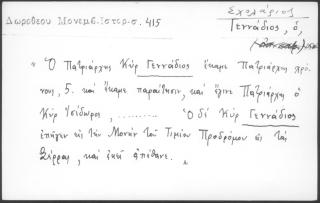 Σχολάριος
Δωροθέου Μονεμβ. Ιστορ. σ. 415
Γεννάδιος, ὁ,
« Ὁ Πατριάρχης Κὺρ Γεννάδιος ἔκαμε Πατριάρχης χρό-
νους, 5. καὶ ἔκαμε παραίτησιν, καὶ ἔγινε Πατριάρχης ὁ
Κὺρ Ἰσίδωρος, .......... Ὁ δὲ Κὺρ Γεννάδιος
ἐπῆγεν εἰς τὴν Μονὴν τοῦ Τιμίου Προδρόμου εἰς τὰς
Σέρρας, καὶ ἐκεῖ ἀπέθανε. »